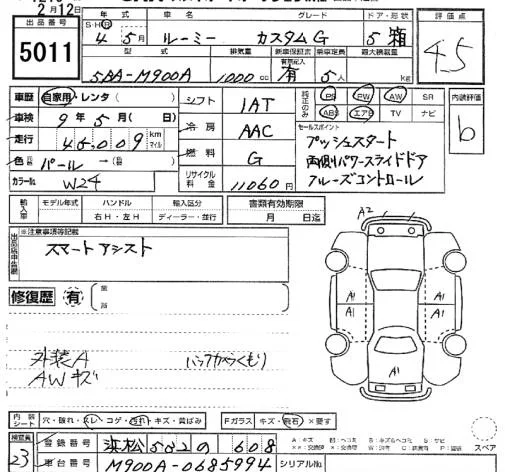 2月12日
出品番号 5011
年式 車名 グレード ドア・形状 評価点
S・H・R 4年5月 ルーミー カスタムG 5 箱 4.5
型式 排気量 新車保証書 乗車定員 最大積載量
5BA-M900A 1000cc 有 5人 kg
車歴 自家用・レンタ( ) シフト IAT 純正のみ PS PW AW SR 内装評価
車検 9年5月( 日) 冷房 AAC ABS エアB TV ナビ b
走行 45,009 km マイル 燃料 G セールスポイント
プッシュスタート
色 パール→( ) 両側パワースライドドア
カラーNo. W24 リサイクル料金 11060円 クルーズコントロール
輸入車 モデル年式 ハンドル 輸入区分 書類有効期限
右H・左H ディーラー・並行 月 日迄
A2
※注意事項等記載
出品店申告欄
スマートアシスト
修復歴 有
A1
A1
A1
A1
A1
外装A バックカメラくもり
AWキズ
内装シート 穴・破れ・スレ・コゲ・汚れ・キズ・黄ばみ Fガラス キズ・飛石 ×要す
検査員 23
登録番号 浜松 582 の 608
A:キズ スペア
車台番号 M900A-0685994 シリアルNo.